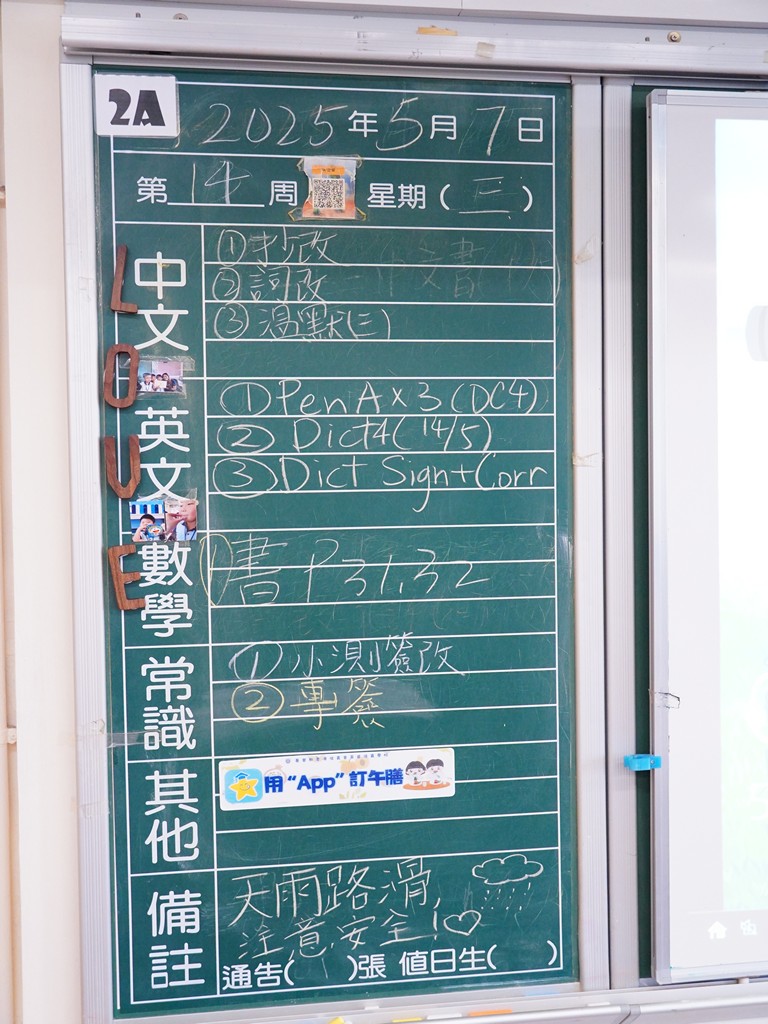 2A
2025年5月7日
第14周 星期(三)
中文
①抄改
②詞改
③温默(三)
英文
①PenA×3(DC4)
②Dict4(14/5)
③Dict Sign+Corr
數學
①書P31,32
常識
①小測簽改
②專簽
其他
用“App”訂午膳
備註
天雨路滑,
注意安全!
通告( )張 值日生( )
LOVE